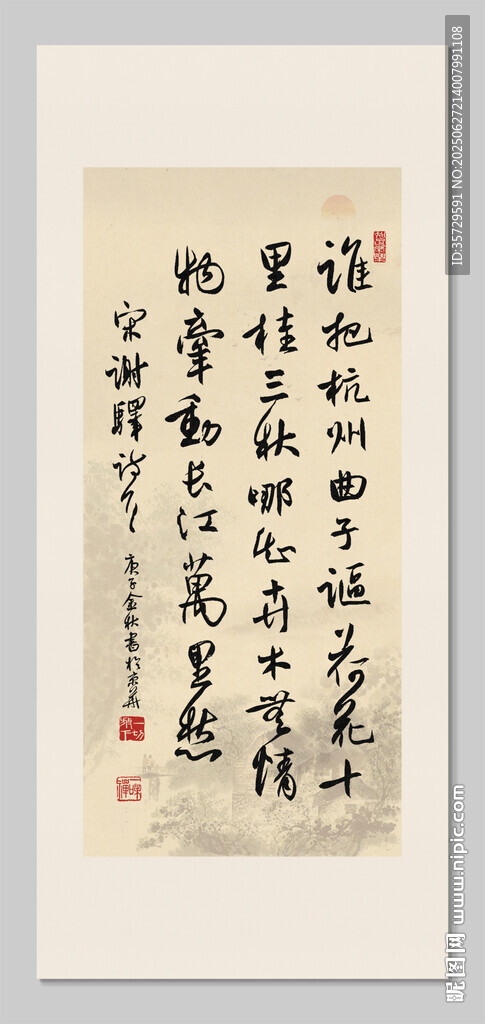 誰把杭州曲子謳荷花十
里桂三秋哪知卉木無情
物牽動长江萬里愁
宋謝驛詩
庚子金秋書於京華
ID:35729591 NO:20250627214007991108
昵图网 www.nipic.com